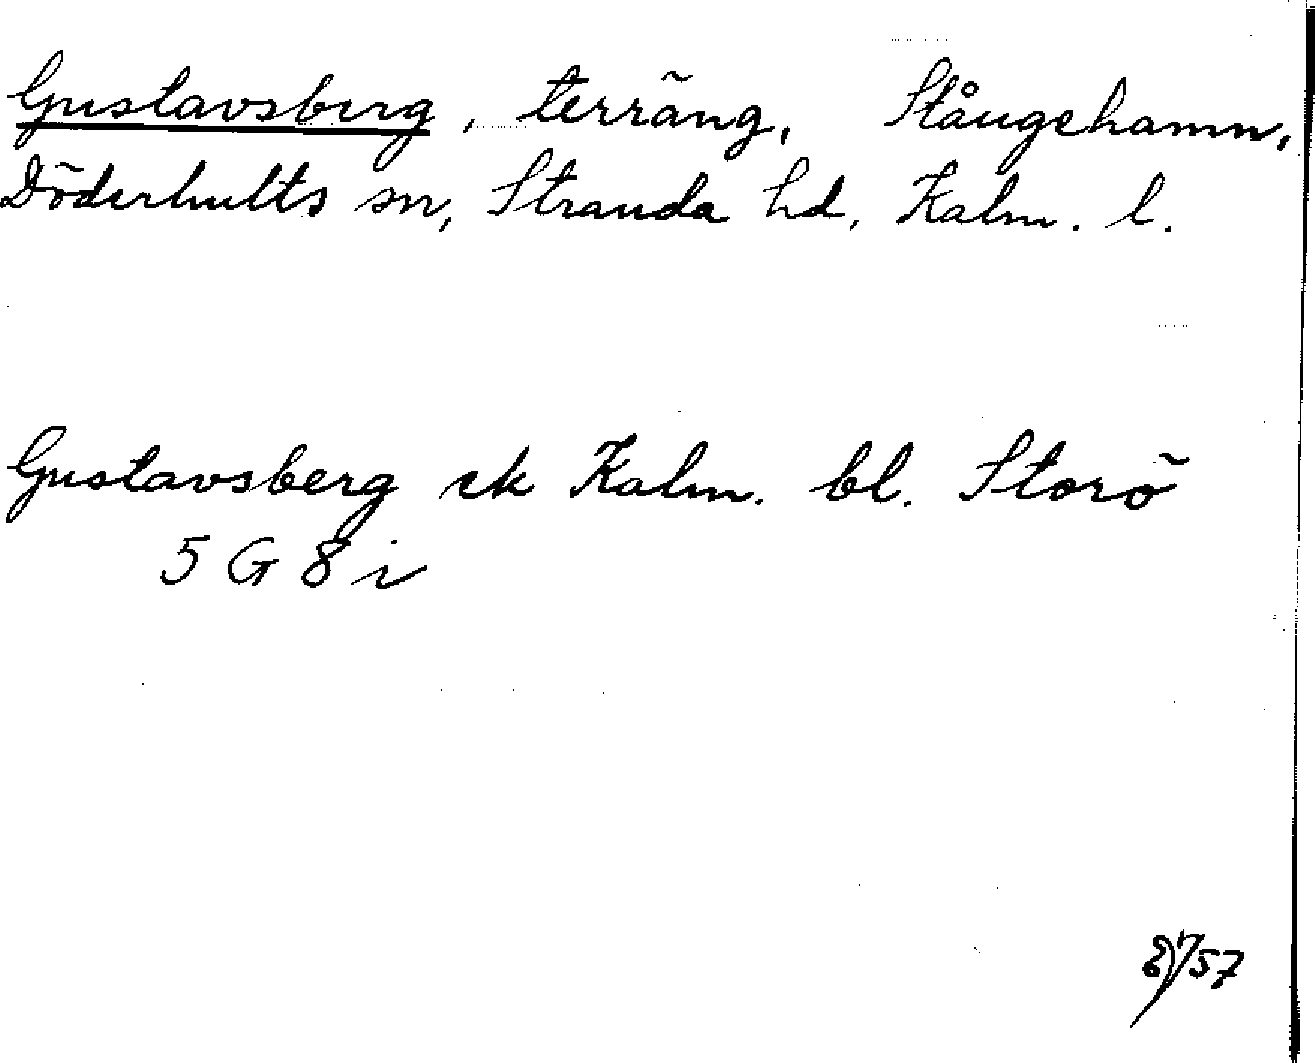 Gustavsberg, terräng, Stångehamn,
Döderhults sn, Stranda hd, Kalm. l.
Gustavsberg ek Kalm. bl. Storö
5 G 8 i